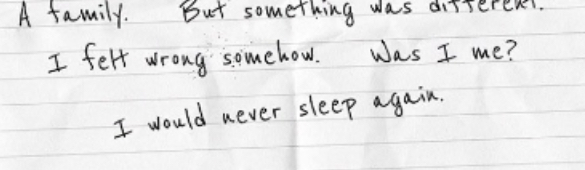 A family. But something was different.
I felt wrong somehow. Was I me?
I would never sleep again.